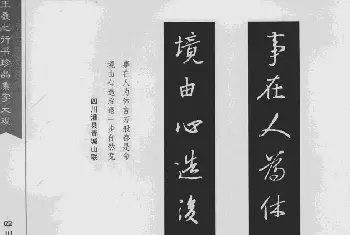 事在人為休
境由心造後
事在人为休言万般皆是命
境由心造后退一步自然宽
四川灌县青城山联
王羲之行书珍品集字大观
四川